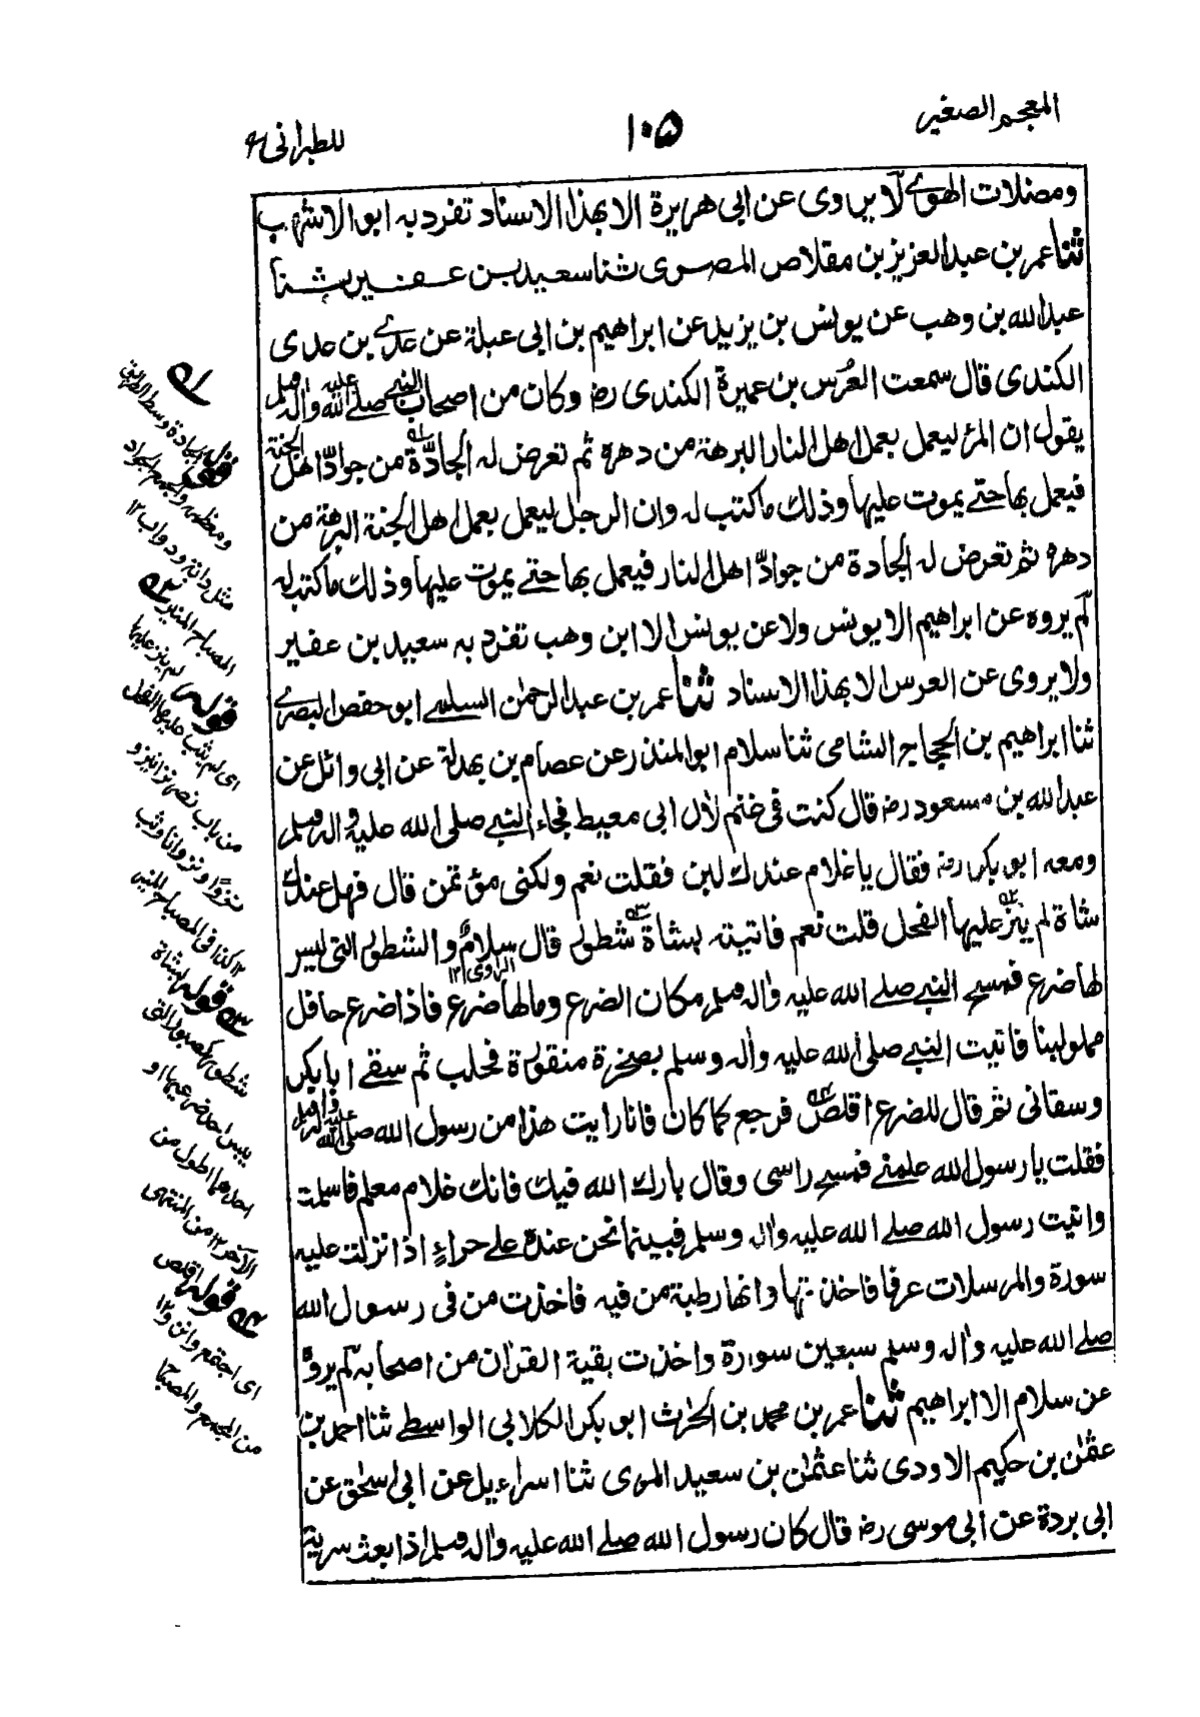 المعجم الصغير
١٠٥
للطبرانى
ومضلات الهوى لا يروى عن ابى هريرة الا بهذا الاسناد تفرد به ابو الاشهب
ثنا عمر بن عبد العزيز بن مقلاص المصرى ثنا سعيد بن عفير ثنا
عبد الله بن وهب عن يونس بن يزيد عن ابراهيم بن ابى عبلة عن عدى بن عدى
الكندى قال سمعت العرس بن عميرة الكندى رض وكان من اصحاب النبى صلى الله عليه واله وسلم
يقول ان المرء ليعمل بعمل اهل النار البرهة من دهره ثم تعرض له الجادّة من جوادّ اهل الجنة
فيعمل بها حتے يموت عليها وذلك ما كتب له وان الرجل ليعمل بعمل اهل الجنة البرهة من
دهره ثم تعرض له الجادة من جوادّ اهل النار فيعمل بها حتے يموت عليها وذلك ما كتب له
لم يروه عن ابراهيم الا يونس ولا عن يونس الا ابن وهب تفرد به سعيد بن عفير
ولا يروى عن العرس الا بهذا الاسناد ثنا عمر بن عبد الرحمٰن السلمے ابو حفص البصرے
ثنا ابراهيم بن الحجاج الشامى ثنا سلام ابو المنذر عن عصام بن بهدلة عن ابى وائل عن
عبد الله بن مسعود رض قال كنت فى غنم لآل ابى معيط فجاء النبے صلى الله عليه واله وسلم
ومعه ابو بكر رض فقال يا غلام عندك لبن فقلت نعم ولكنى مؤتمن قال فهل عندك
شاة لم ينز عليها الفحل قلت نعم فاتيته بشاة شطور قال سلام والشطور التى ليس
الراوى ١٢
لها ضرع فمسح النبے صلے الله عليه واله وسلم مكان الضرع وما لها ضرع فاذا ضرع حافل
مملو لبنا فاتيت النبے صلى الله عليه واله وسلم بصخرة منقورة فحلب ثم سقے ابا بكر
وسقانى ثم قال للضرع اقلص فرجع كما كان فانا رايت هذا من رسول الله صلى الله عليه واله وسلم
فقلت يا رسول الله علمنے فمسح راسى وقال بارك الله فيك فانك غلام معلم فاسلمت
واتيت رسول الله صلے الله عليه واله وسلم فبينما نحن عنده علے حراءٍ اذا نزلت عليه
سورة والمرسلات عرفا فاخذتها وانها رطبة من فيه فاخذت من فى رسول الله
صلے الله عليه واله وسلم سبعين سورة واخذت بقية القرٰان من اصحابه لم يروه
عن سلام الا ابراهيم ثنا عمر بن محمد بن الحٰرث ابو بكر الكلابى الواسطے ثنا احمد بن
عثمٰن بن حكيم الاودى ثنا عثمٰن بن سعيد المرى ثنا اسراءيل عن ابى اسحٰق عن
ابى بردة عن ابى موسى رض قال كان رسول الله صلے الله عليه واله وسلم اذا بعث سرية
قوله الجادة وسط الطريق
ومعظمه والجمع الجواد
مثل دابة ودواب ١٢
المصباح المنير
قوله لم ينز عليها
اى لم يثب عليها الفحل
من باب نصر نزا ينزو
نزوًا ونزوانا وثب
١٢ كذا فى المصباح المنير
قوله بشاة
شطور كصبور التى
يبس احد ضرعيها او
احدهما اطول من
الآخر ١٢ من المنتهى
قوله اقلص
اى اجتمع وانزو ١٢
من المجمع والمصباح